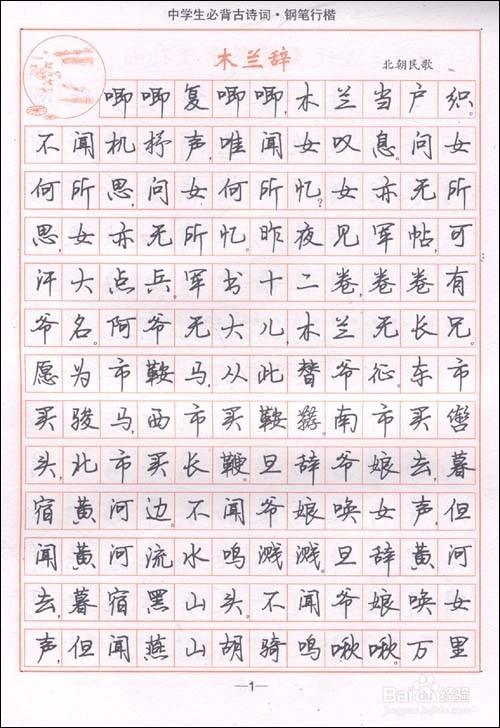 中学生必背古诗词·钢笔行楷
木兰辞
北朝民歌
唧唧复唧唧,木兰当户织。
不闻机杼声,唯闻女叹息。问女
何所思,问女何所忆?女亦无所
思,女亦无所忆。昨夜见军帖,可
汗大点兵,军书十二卷,卷卷有
爷名。阿爷无大儿,木兰无长兄。
愿为市鞍马,从此替爷征。东市
买骏马,西市买鞍鞯。南市买辔
头,北市买长鞭。旦辞爷娘去,暮
宿黄河边。不闻爷娘唤女声,但
闻黄河流水鸣溅溅。旦辞黄河
去,暮宿黑山头。不闻爷娘唤女
声,但闻燕山胡骑鸣啾啾。万里
—1—
Baidu经验